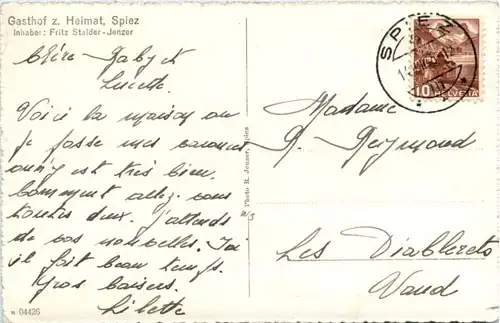 Gasthof z. Heimat, Spiez
Inhaber: Fritz Stalder-Jenzer
Chère Gaby et
Lucette.
Voici la maison où
je passe mes vacances
on n'y est très bien.
Comment allez-vous
toutes deux. J'attends
de vos nouvelles. Ici
il fait beau temps.
Gros baisers.
Lilette
N 04426
Photo R. Jenzer, Spiez
SPIEZ
10 HELVETIA
Madame
R. Reymond
Les Diablerets
Vaud